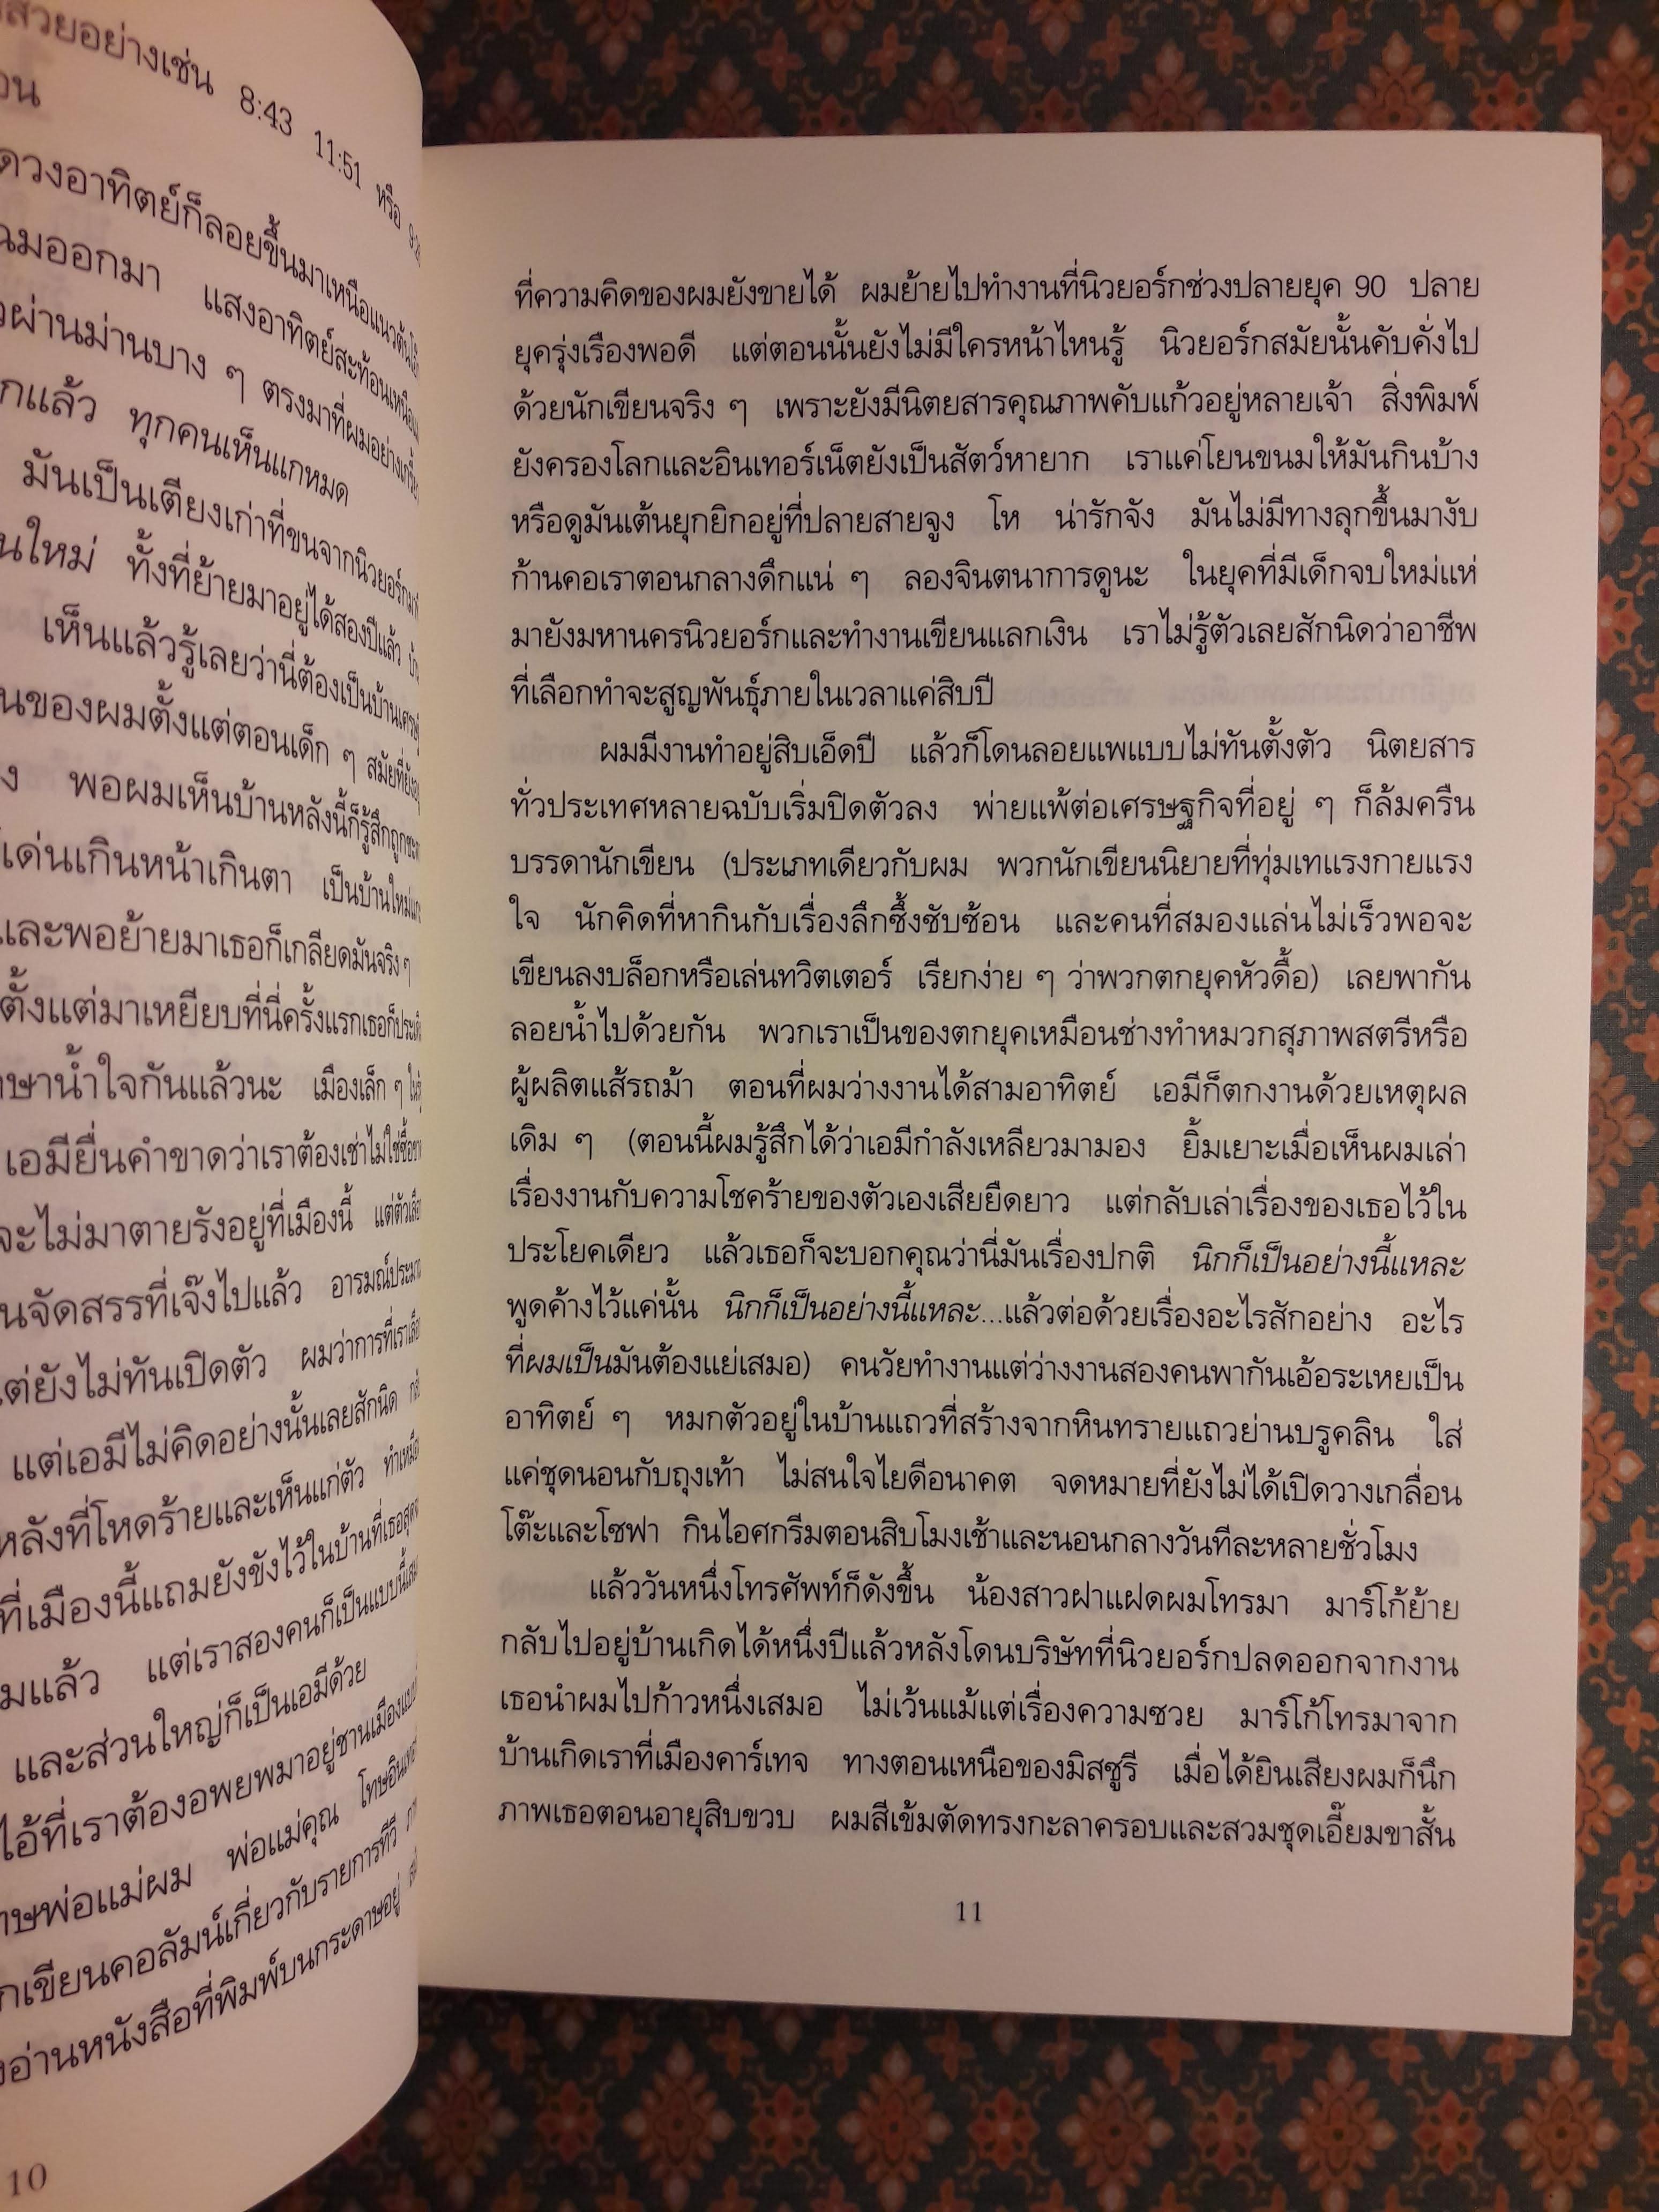 สวยอย่างเช่น 8:43 11:51 หรือ
ดวงอาทิตย์ก็ลอยขึ้นมาเหนือแนวต้นโอ๊ก
ออกมา แสงอาทิตย์สะท้อนเหนือ
ผ่านม่านบาง ๆ ตรงมาที่ผมอย่าง
แล้ว ทุกคนเห็นแกหมด
มันเป็นเตียงเก่าที่ขนจากนิวยอร์กมา
ใหม่ ทั้งที่ย้ายมาอยู่ได้สองปีแล้ว
เห็นแล้วรู้เลยว่านี่ต้องเป็นบ้านเศรษฐี
ของผมตั้งแต่ตอนเด็ก ๆ สมัยที่ยัง
พอผมเห็นบ้านหลังนี้ก็รู้สึกถูกชะตา
เด่นเกินหน้าเกินตา เป็นบ้านใหม่
และพอย้ายมาเธอก็เกลียดมันจริง ๆ
ตั้งแต่มาเหยียบที่นี่ครั้งแรกเธอก็
น้ำใจกันแล้วนะ เมืองเล็ก ๆ
เอมียื่นคำขาดว่าเราต้องเช่าไม่ใช่ซื้อ
จะไม่มาตายรังอยู่ที่เมืองนี้
จัดสรรที่เจ๊งไปแล้ว อารมณ์
แต่ยังไม่ทันเปิดตัว ผมว่าการที่เรา
แต่เอมีไม่คิดอย่างนั้นเลยสักนิด
หลังที่โหดร้ายและเห็นแก่ตัว
ที่เมืองนี้แถมยังขังไว้ในบ้านที่เธอ
แล้ว แต่เราสองคนก็เป็นแบบนี้
และส่วนใหญ่ก็เป็นเอมีด้วย
ไอ้ที่เราต้องอพยพมาอยู่ชานเมือง
พ่อแม่ผม พ่อแม่คุณ
เขียนคอลัมน์เกี่ยวกับรายการทีวี
อ่านหนังสือที่พิมพ์บนกระดาษอยู่
10
ที่ความคิดของผมยังขายได้ ผมย้ายไปทำงานที่นิวยอร์กช่วงปลายยุค 90 ปลาย
ยุครุ่งเรืองพอดี แต่ตอนนั้นยังไม่มีใครหน้าไหนรู้ นิวยอร์กสมัยนั้นคับคั่งไป
ด้วยนักเขียนจริง ๆ เพราะยังมีนิตยสารคุณภาพคับแก้วอยู่หลายเจ้า สิ่งพิมพ์
ยังครองโลกและอินเทอร์เน็ตยังเป็นสัตว์หายาก เราแค่โยนขนมให้มันกินบ้าง
หรือดูมันเต้นยุกยิกอยู่ที่ปลายสายจูง โห น่ารักจัง มันไม่มีทางลุกขึ้นมางับ
ก้านคอเราตอนกลางดึกแน่ ๆ ลองจินตนาการดูนะ ในยุคที่มีเด็กจบใหม่แห่
มายังมหานครนิวยอร์กและทำงานเขียนแลกเงิน เราไม่รู้ตัวเลยสักนิดว่าอาชีพ
ที่เลือกทำจะสูญพันธุ์ภายในเวลาแค่สิบปี
ผมมีงานทำอยู่สิบเอ็ดปี แล้วก็โดนลอยแพแบบไม่ทันตั้งตัว นิตยสาร
ทั่วประเทศหลายฉบับเริ่มปิดตัวลง พ่ายแพ้ต่อเศรษฐกิจที่อยู่ ๆ ก็ล้มครืน
บรรดานักเขียน (ประเภทเดียวกับผม พวกนักเขียนนิยายที่ทุ่มเทแรงกายแรง
ใจ นักคิดที่หากินกับเรื่องลึกซึ้งซับซ้อน และคนที่สมองแล่นไม่เร็วพอจะ
เขียนลงบล็อกหรือเล่นทวิตเตอร์ เรียกง่าย ๆ ว่าพวกตกยุคหัวดื้อ) เลยพากัน
ลอยน้ำไปด้วยกัน พวกเราเป็นของตกยุคเหมือนช่างทำหมวกสุภาพสตรีหรือ
ผู้ผลิตแส้รถม้า ตอนที่ผมว่างงานได้สามอาทิตย์ เอมีก็ตกงานด้วยเหตุผล
เดิม ๆ (ตอนนี้ผมรู้สึกได้ว่าเอมีกำลังเหลียวมามอง ยิ้มเยาะเมื่อเห็นผมเล่า
เรื่องงานกับความโชคร้ายของตัวเองเสียยืดยาว แต่กลับเล่าเรื่องของเธอไว้ใน
ประโยคเดียว แล้วเธอก็จะบอกคุณว่านี่มันเรื่องปกติ นิกก็เป็นอย่างนี้แหละ
พูดค้างไว้แค่นั้น นิกก็เป็นอย่างนี้แหละ...แล้วต่อด้วยเรื่องอะไรสักอย่าง อะไร
ที่ผมเป็นมันต้องแย่เสมอ) คนวัยทำงานแต่ว่างงานสองคนพากันเอ้อระเหยเป็น
อาทิตย์ ๆ หมกตัวอยู่ในบ้านแถวที่สร้างจากหินทรายแถวย่านบรูคลิน ใส่
แค่ชุดนอนกับถุงเท้า ไม่สนใจไยดีอนาคต จดหมายที่ยังไม่ได้เปิดวางเกลื่อน
โต๊ะและโซฟา กินไอศกรีมตอนสิบโมงเช้าและนอนกลางวันทีละหลายชั่วโมง
แล้ววันหนึ่งโทรศัพท์ก็ดังขึ้น น้องสาวฝาแฝดผมโทรมา มาร์โก้ย้าย
กลับไปอยู่บ้านเกิดได้หนึ่งปีแล้วหลังโดนบริษัทที่นิวยอร์กปลดออกจากงาน
เธอนำผมไปก้าวหนึ่งเสมอ ไม่เว้นแม้แต่เรื่องความซวย มาร์โก้โทรมาจาก
บ้านเกิดเราที่เมืองคาร์เทจ ทางตอนเหนือของมิสซูรี เมื่อได้ยินเสียงผมก็นึก
ภาพเธอตอนอายุสิบขวบ ผมสีเข้มตัดทรงกะลาครอบและสวมชุดเอี๊ยมขาสั้น
11